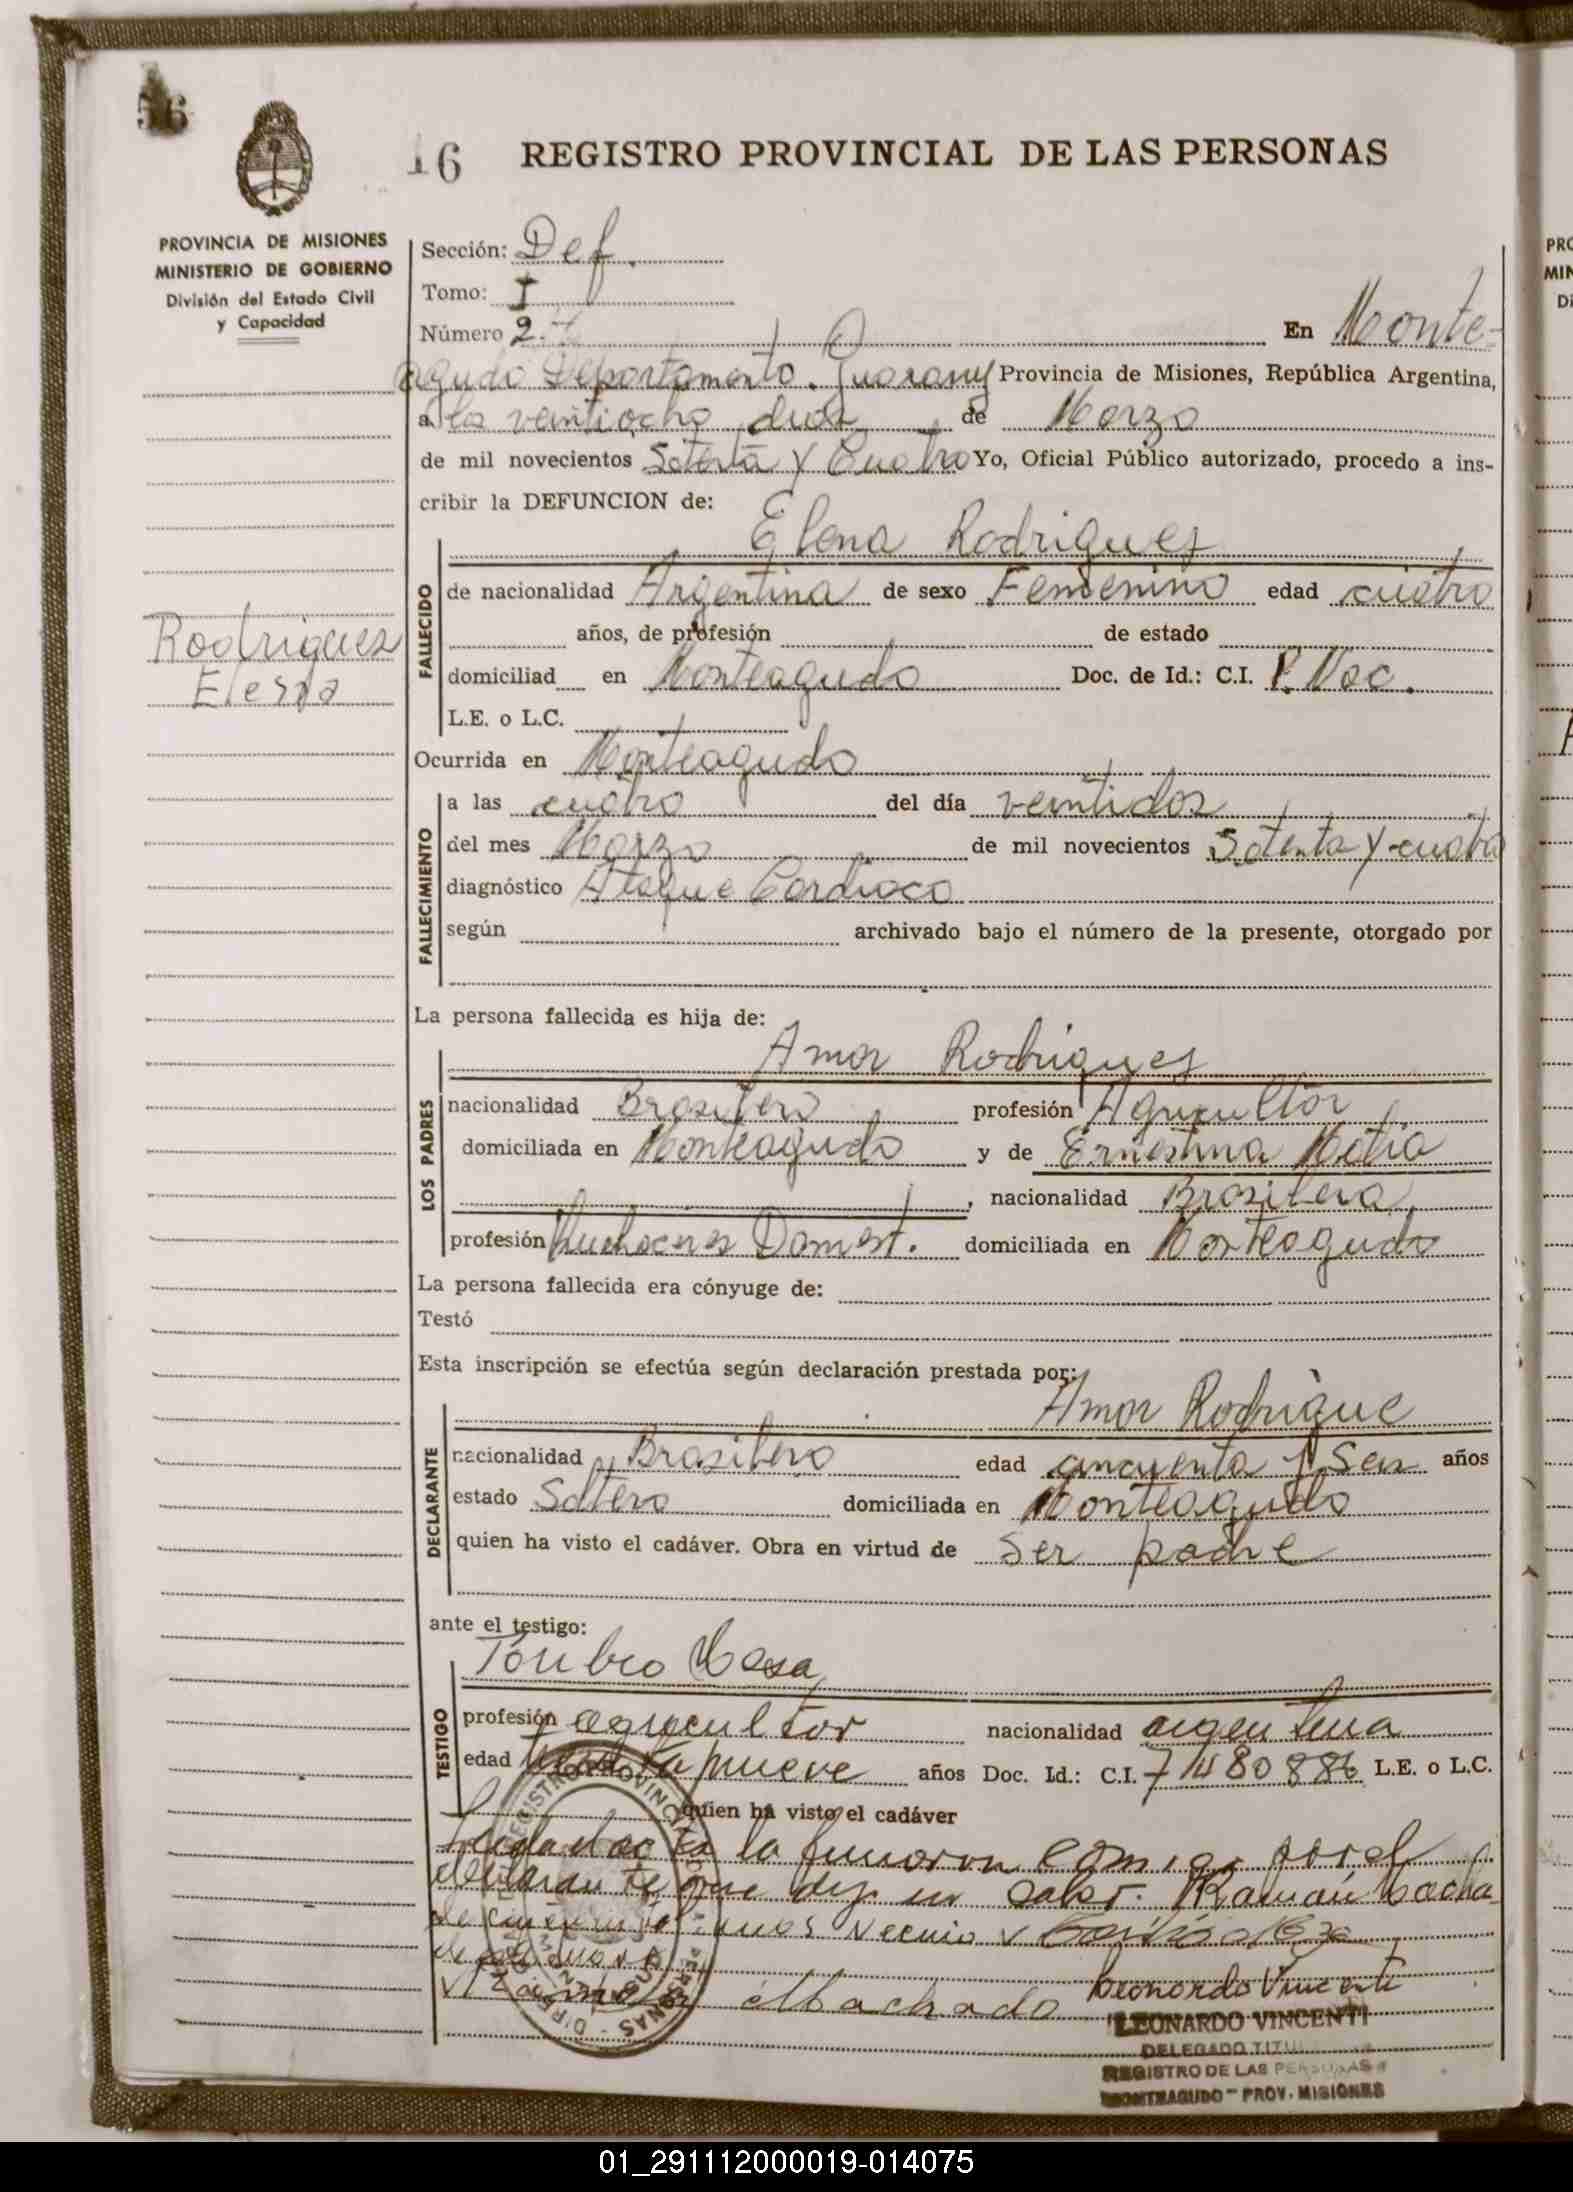 56
16 REGISTRO PROVINCIAL DE LAS PERSONAS
PROVINCIA DE MISIONES
MINISTERIO DE GOBIERNO
División del Estado Civil
y Capacidad
Sección: Def.
Tomo: I
Número 2. En Monte-
agudo Departamento. Guarany Provincia de Misiones, República Argentina,
a los veintiocho dias de Marzo
de mil novecientos Setenta y Cuatro Yo, Oficial Público autorizado, procedo a ins-
cribir la DEFUNCION de:
Elena Rodrigues
FALLECIDO
de nacionalidad Argentina de sexo Femenino edad cuatro
años, de profesión de estado
Rodriguez
Elena
domiciliad en Monteagudo Doc. de Id.: C.I. P. Nac.
L.E. o L.C.
Ocurrida en Monteagudo
FALLECIMIENTO
a las cuatro del día veintidos
del mes Marzo de mil novecientos Setenta y cuatro
diagnóstico Ataque Cardiaco
según archivado bajo el número de la presente, otorgado por
La persona fallecida es hija de:
Amor Rodrigues
LOS PADRES
nacionalidad Brasilero profesión Agricultor
domiciliada en Monteagudo y de Ernestina
, nacionalidad Brasilera
profesión Domest. domiciliada en Monteagudo
La persona fallecida era cónyuge de:
Testó
Esta inscripción se efectúa según declaración prestada por:
Amor Rodrigue
DECLARANTE
nacionalidad Brasilero edad cincuenta y Seis años
estado Soltero domiciliada en Monteagudo
quien ha visto el cadáver. Obra en virtud de Ser padre
ante el testigo:
Toribio
TESTIGO
profesión agricultor nacionalidad argentina
edad nueve años Doc. Id.: C.I. 7480886 L.E. o L.C.
quien ha visto el cadáver
la firmaron conmigo por el
declarante que dijo no saber. Ramón Macha
vecino y
Machado Leonardo Vincenti
LEONARDO VINCENTI
DELEGADO TITU
REGISTRO DE LAS PERSONAS
MONTEAGUDO - PROV. MISIONES
01_291112000019-014075